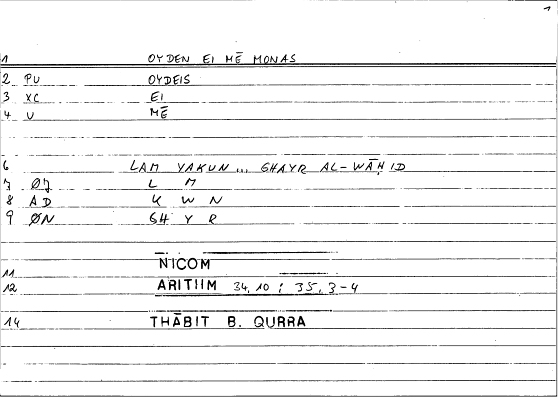 1
1 OYDEN EI MĒ MONAS
2 PU OYDEIS
3 XC EI
4 U MĒ
6 LAM YAKUN... GHAYR AL-WĀḤID
7 ØJ L M
8 AD K W N
9 ØN GH Y R
NICOM
11
12 ARITIIM 34,10 ; 35,3-4
14 THĀBIT B. QURRA